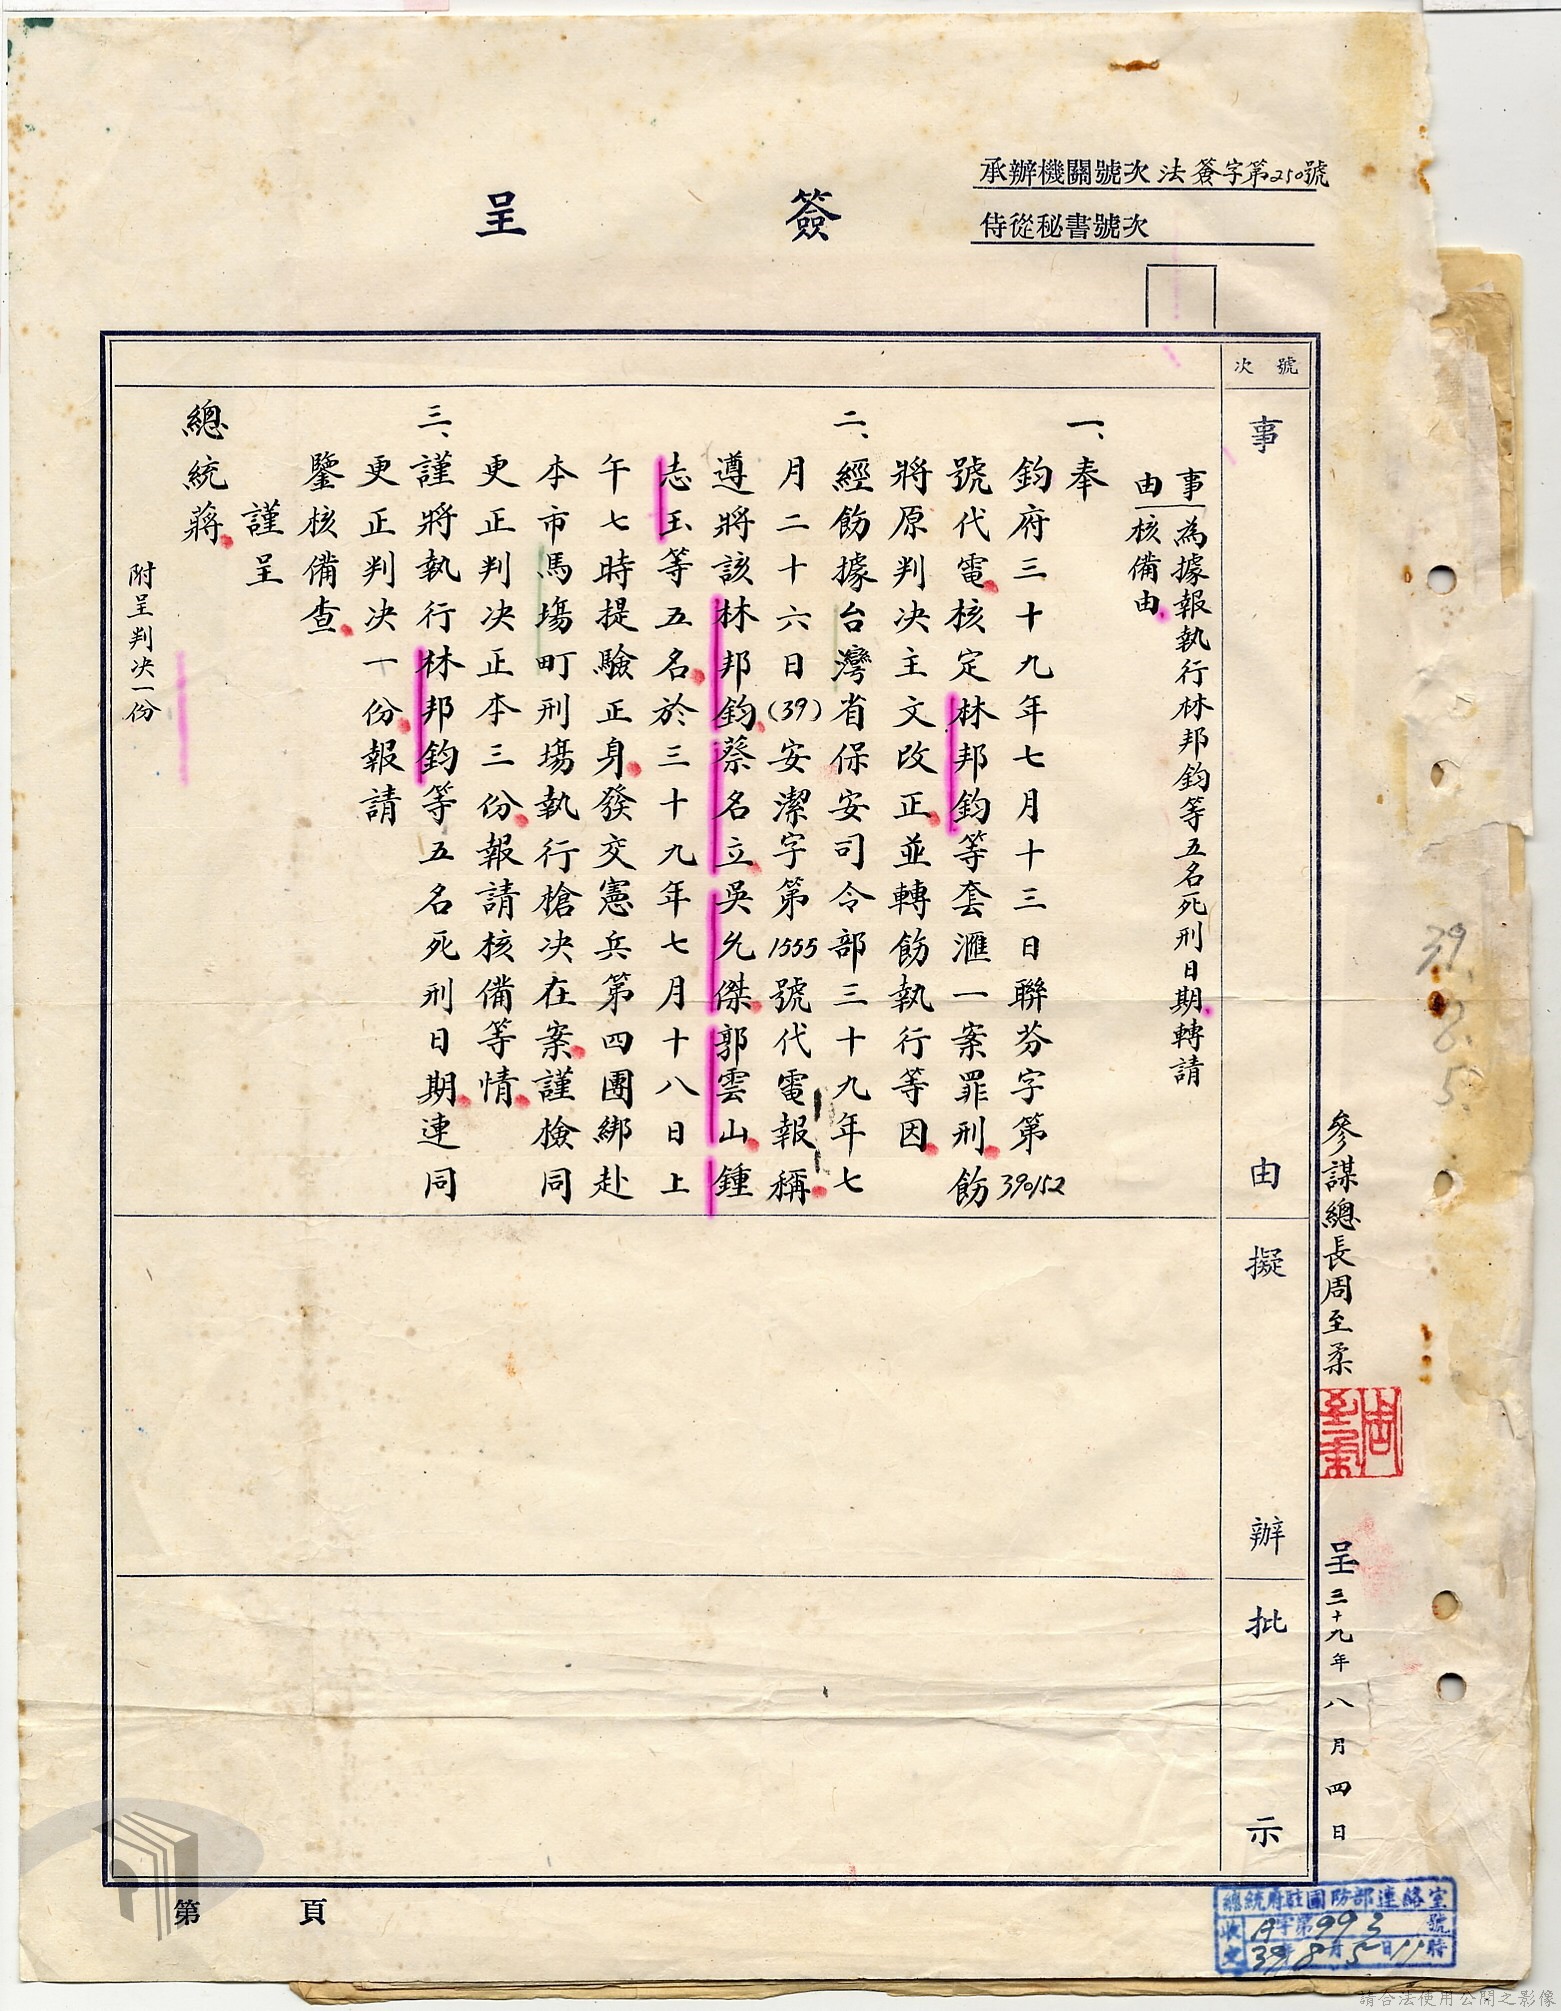 承辦機關號次 法簽字第250號
侍從秘書號次
簽呈
號次
事由
擬辦
批示
事由 為據報執行林邦鈞等五名死刑日期轉請
核備由
一、奉
鈞府三十九年七月十三日聯芬字第390152
號代電核定林邦鈞等套滙一案罪刑飭
將原判決主文改正並轉飭執行等因
二、經飭據台灣省保安司令部三十九年七
月二十六日(39)安潔字第1555號代電報稱
遵將該林邦鈞蔡名立吳允傑郭雲山鍾
志玉等五名於三十九年七月十八日上
午七時提驗正身發交憲兵第四團綁赴
本市馬塲町刑塲執行槍决在案謹檢同
更正判决正本三份報請核備等情
三、謹將執行林邦鈞等五名死刑日期連同
更正判决一份報請
鑒核備查
謹呈
總統蔣
附呈判决一份
參謀總長周至柔
周至柔
呈三十九年八月四日
39.8.5.
總統府駐國防部連絡室
收文 A字第993號
39年8月5日11時
第 頁
請合法使用公開之影像